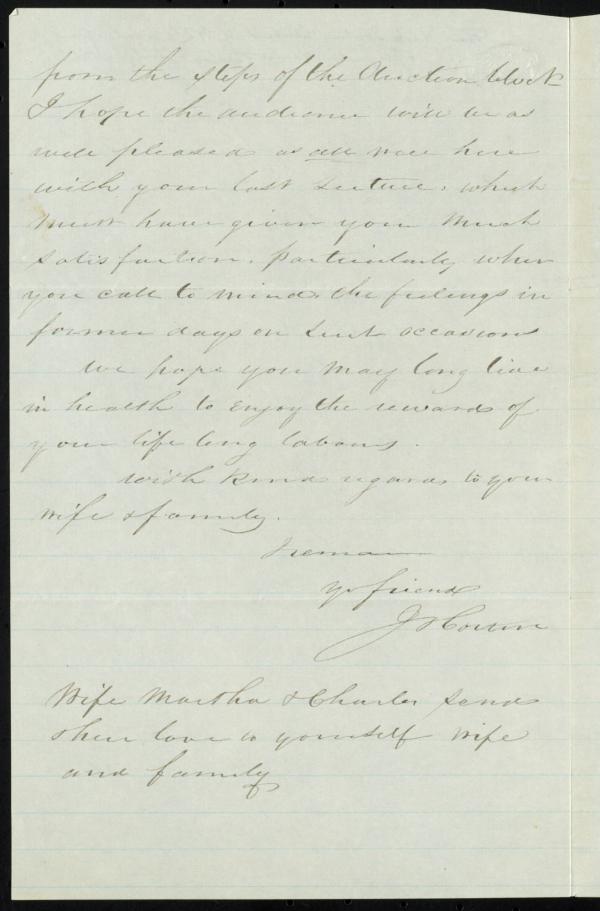 from the steps of the Auction block
I hope the audience will be as
well pleased as all were here
with your last Lecture, which
must have given you much
satisfaction, particularly when
you call to mind the feelings in
former days on such occasions
We hope you may long live
in health to enjoy the rewards of
your life long labours.
With kind regards to your
wife & family.
I remain
yr friend
Wife Martha & Charles sends
their love to yourself wife
and family